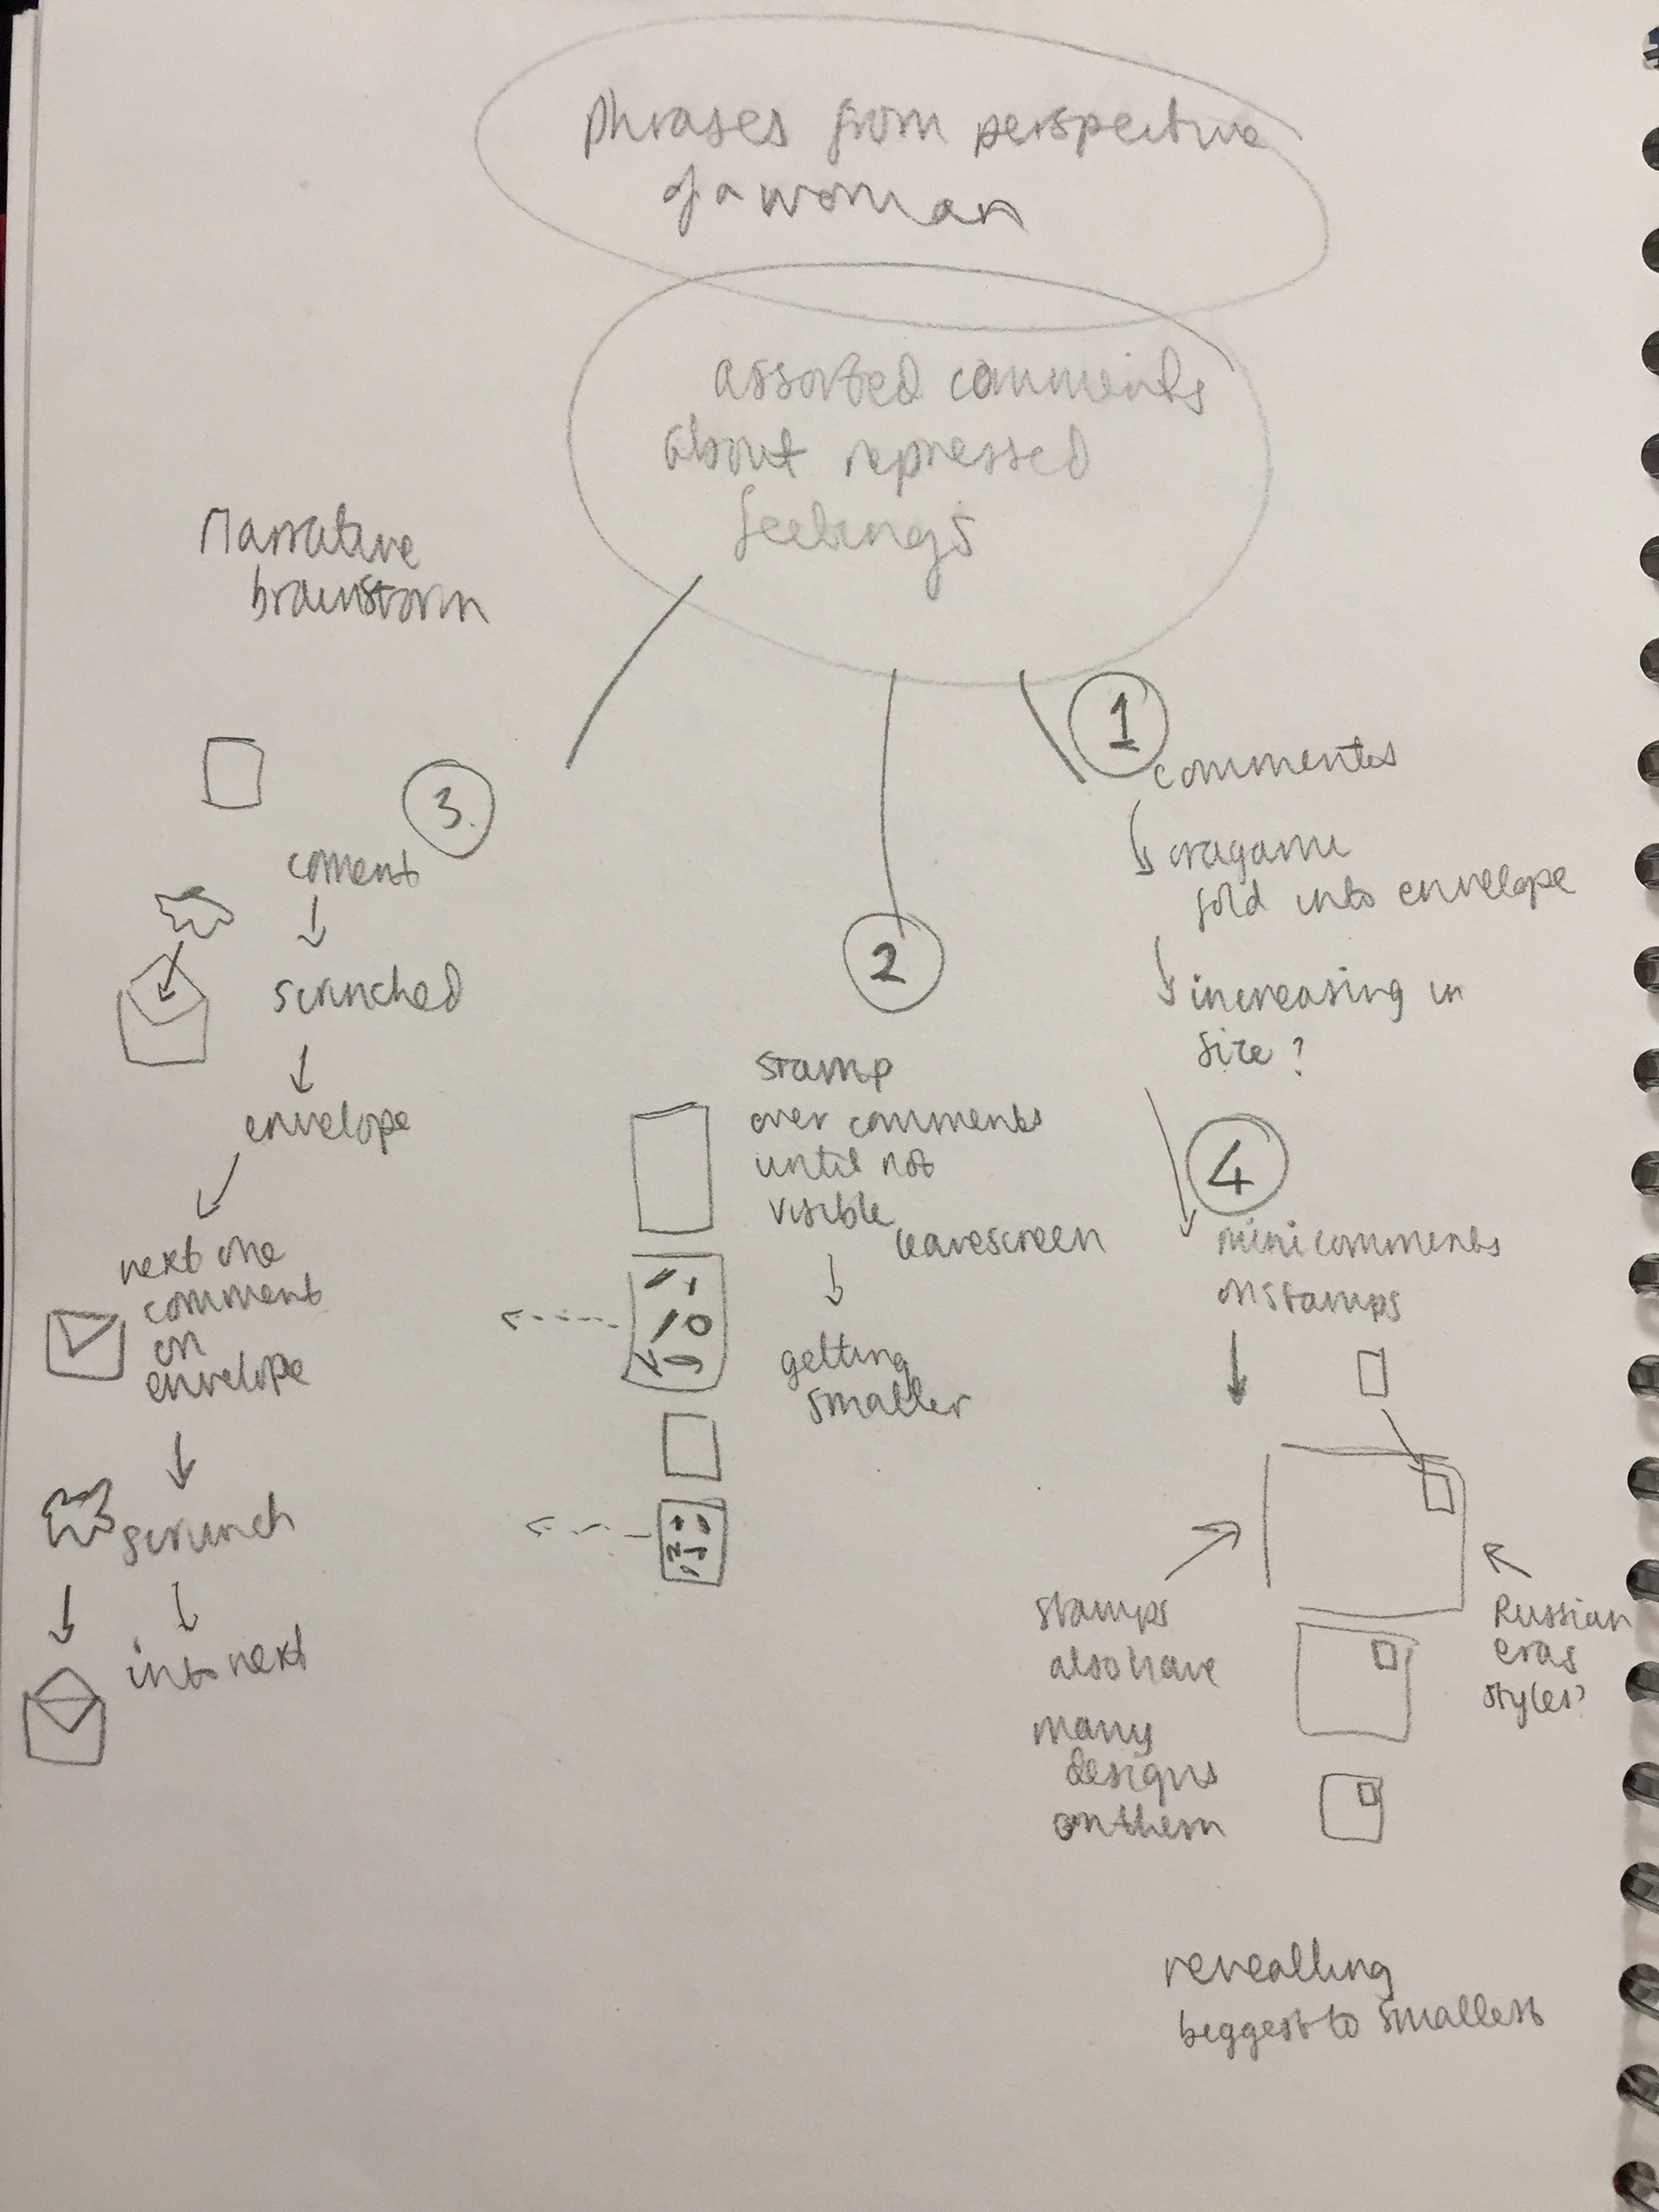 phrases from perspective
of a woman
assorted comments
about repressed
feelings
Narrative
brainstorm
1
commentes
oragami
fold into envelope
increasing in
size?
2
stamp
over comments
until not
visible
leavescreen
getting
smaller
3.
coment
scrunched
envelope
next one
comment
on
envelope
scrunch
into next
4
mini comments
on stamps
stamps
also have
many
designs
on them
Russian
eras
styles?
revealling
biggest to smallest